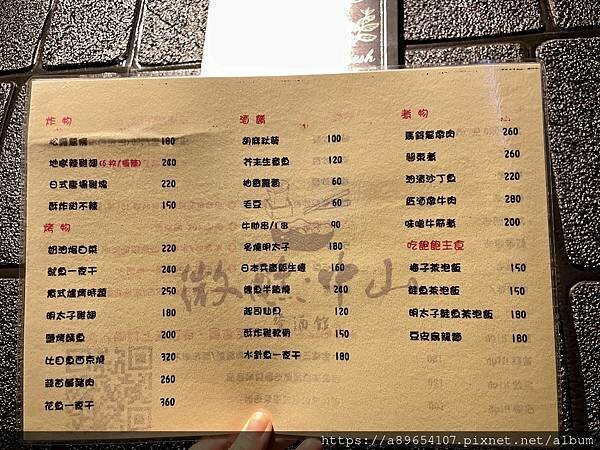 炸物
180
地獄辣雞翅(6枚/慎辣) 240
日式唐揚雞塊 220
酥炸甜不辣 150
烤物
奶油焗白菜 220
魷魚一夜干 240
義式爐烤時蔬 250
明太子雞翅 180
鹽烤鯖魚 200
比目魚西京燒 320
蒜苗鹹豬肉 260
花魚一夜干 360
酒餚
胡麻秋葵 100
芥末生章魚 120
柚香蘿蔔 60
毛豆 60
牛肋串/1串 90
炙燒明太子 180
日本兵庫縣生蠔 160
鱈魚半筋燒 240
起司仙貝 120
酥炸雞軟骨 150
水針魚一夜干 180
煮物
馬鈴薯燉肉 260
關東煮 200
油漬沙丁魚 220
紅酒燉牛肉 280
味噌牛筋煮 200
吃飽飽主食
梅子茶泡飯 150
鮭魚茶泡飯 150
明太子鮭魚茶泡飯 180
豆皮烏龍麵 180
微醺中山
居酒館
https://a89654107.pixnet.net/album